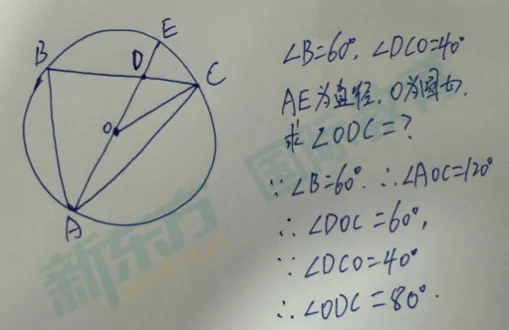 E
B
D
C
O
A
∠B=60°, ∠DCO=40°
AE为直径, O为圆心.
求∠ODC=?
∵∠B=60°. ∴∠AOC=120°
∴∠DOC=60°,
∵∠DCO=40°
∴∠ODC=80°.
新东方